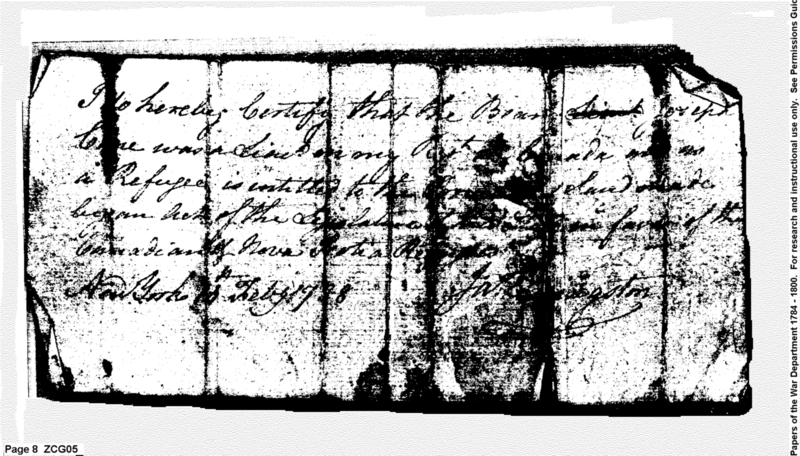 I do hereby Certify that the Bearer Lieut Joseph
was a Lieut in my Regt Canada and as
a Refugee is intitled to the Land made
by an Act of the in favor of the
Canadian & Nova Scotia Refugees
New York 18th Feby 1788 Jas Livingston
Page 8 ZCG05
Papers of the War Department 1784 - 1800. For research and instructional use only. See Permissions Guid